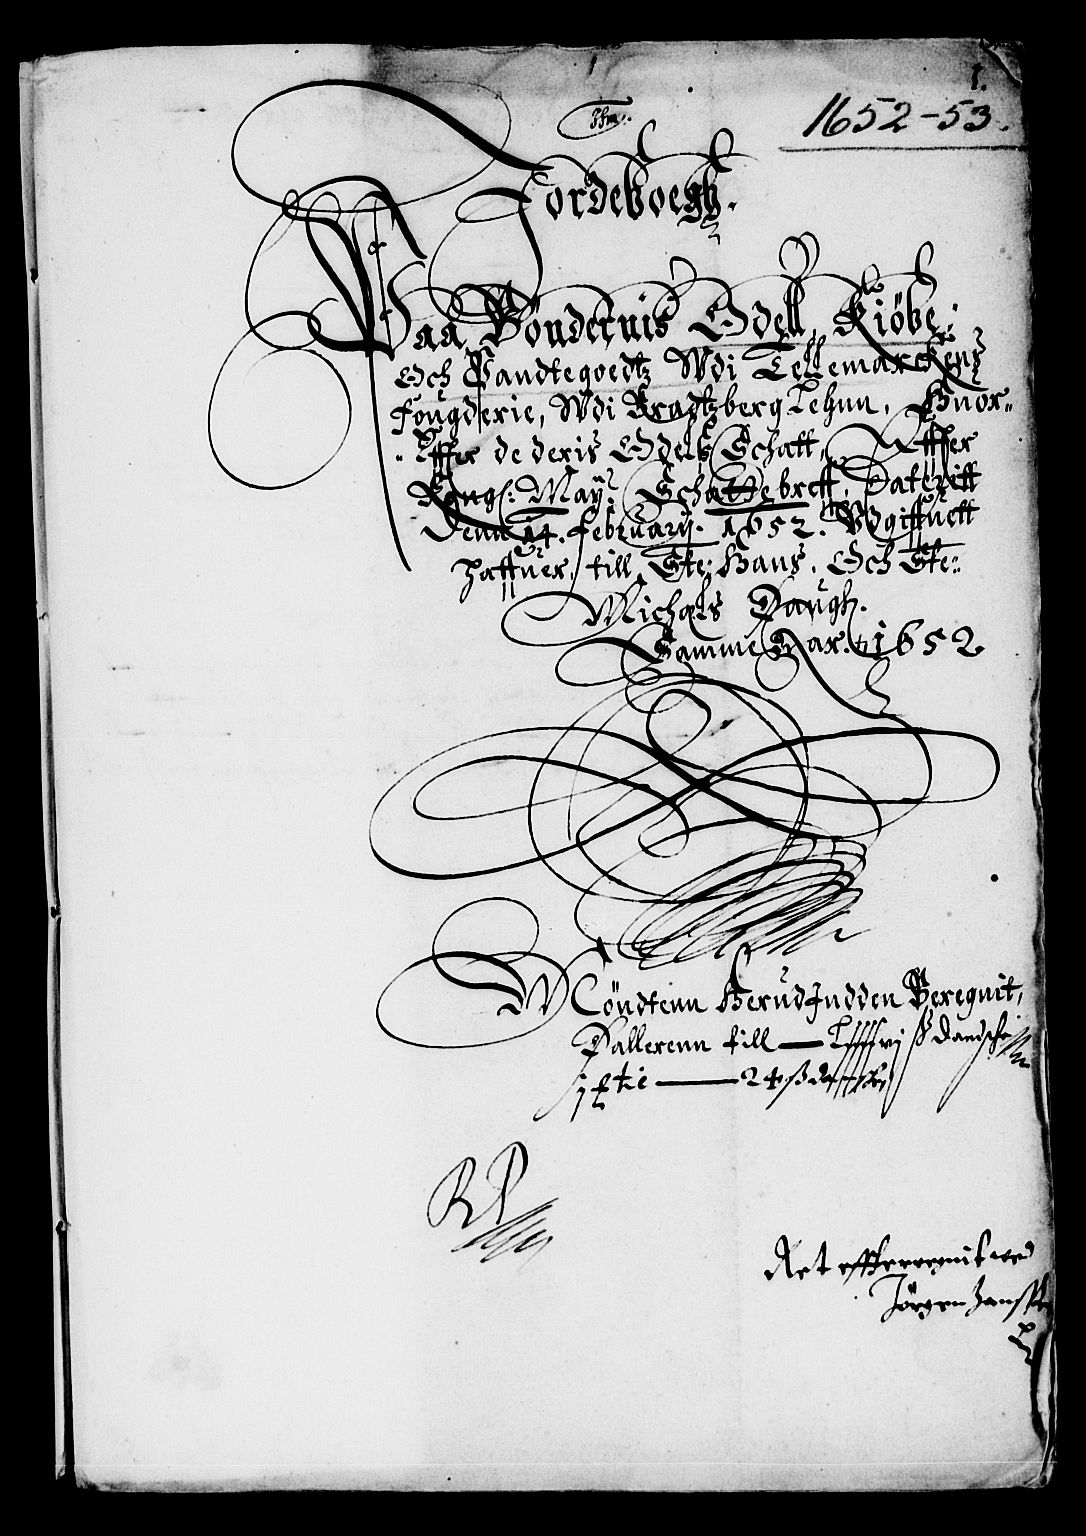 1.
1652-53.
Jordeboegh.
Paa Böndernis Odell, Kiöbe,
Och Pandtegoedtz Udi Tellemarckens
fougderie, Udi Bradtzberg Lehnn, Huor-
-effter de deris Odels Schatt, Effter
Kongl: May: Schattebreff, Dateritt
Denn 14. February. 1652. Udgiffuett
haffuer, till Ste: Hans, Och Ste:
Michels Daugh.
Samme Aar. 1652.
Möndtenn Herudjndden Beregnit,
Dallerenn till — Lxxxxvj ß dansche
1 — 24 ß
RP
Ret effterregnit ved
Jörgen Janss